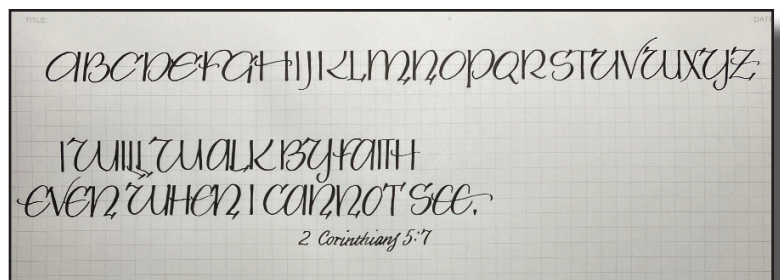 TITLE:
DAT
ABCDEFGHIJKLMNOPQRSTUVWXYZ
I WILL WALK BY FAITH
EVEN WHEN I CANNOT SEE.
2 Corinthians 5:7